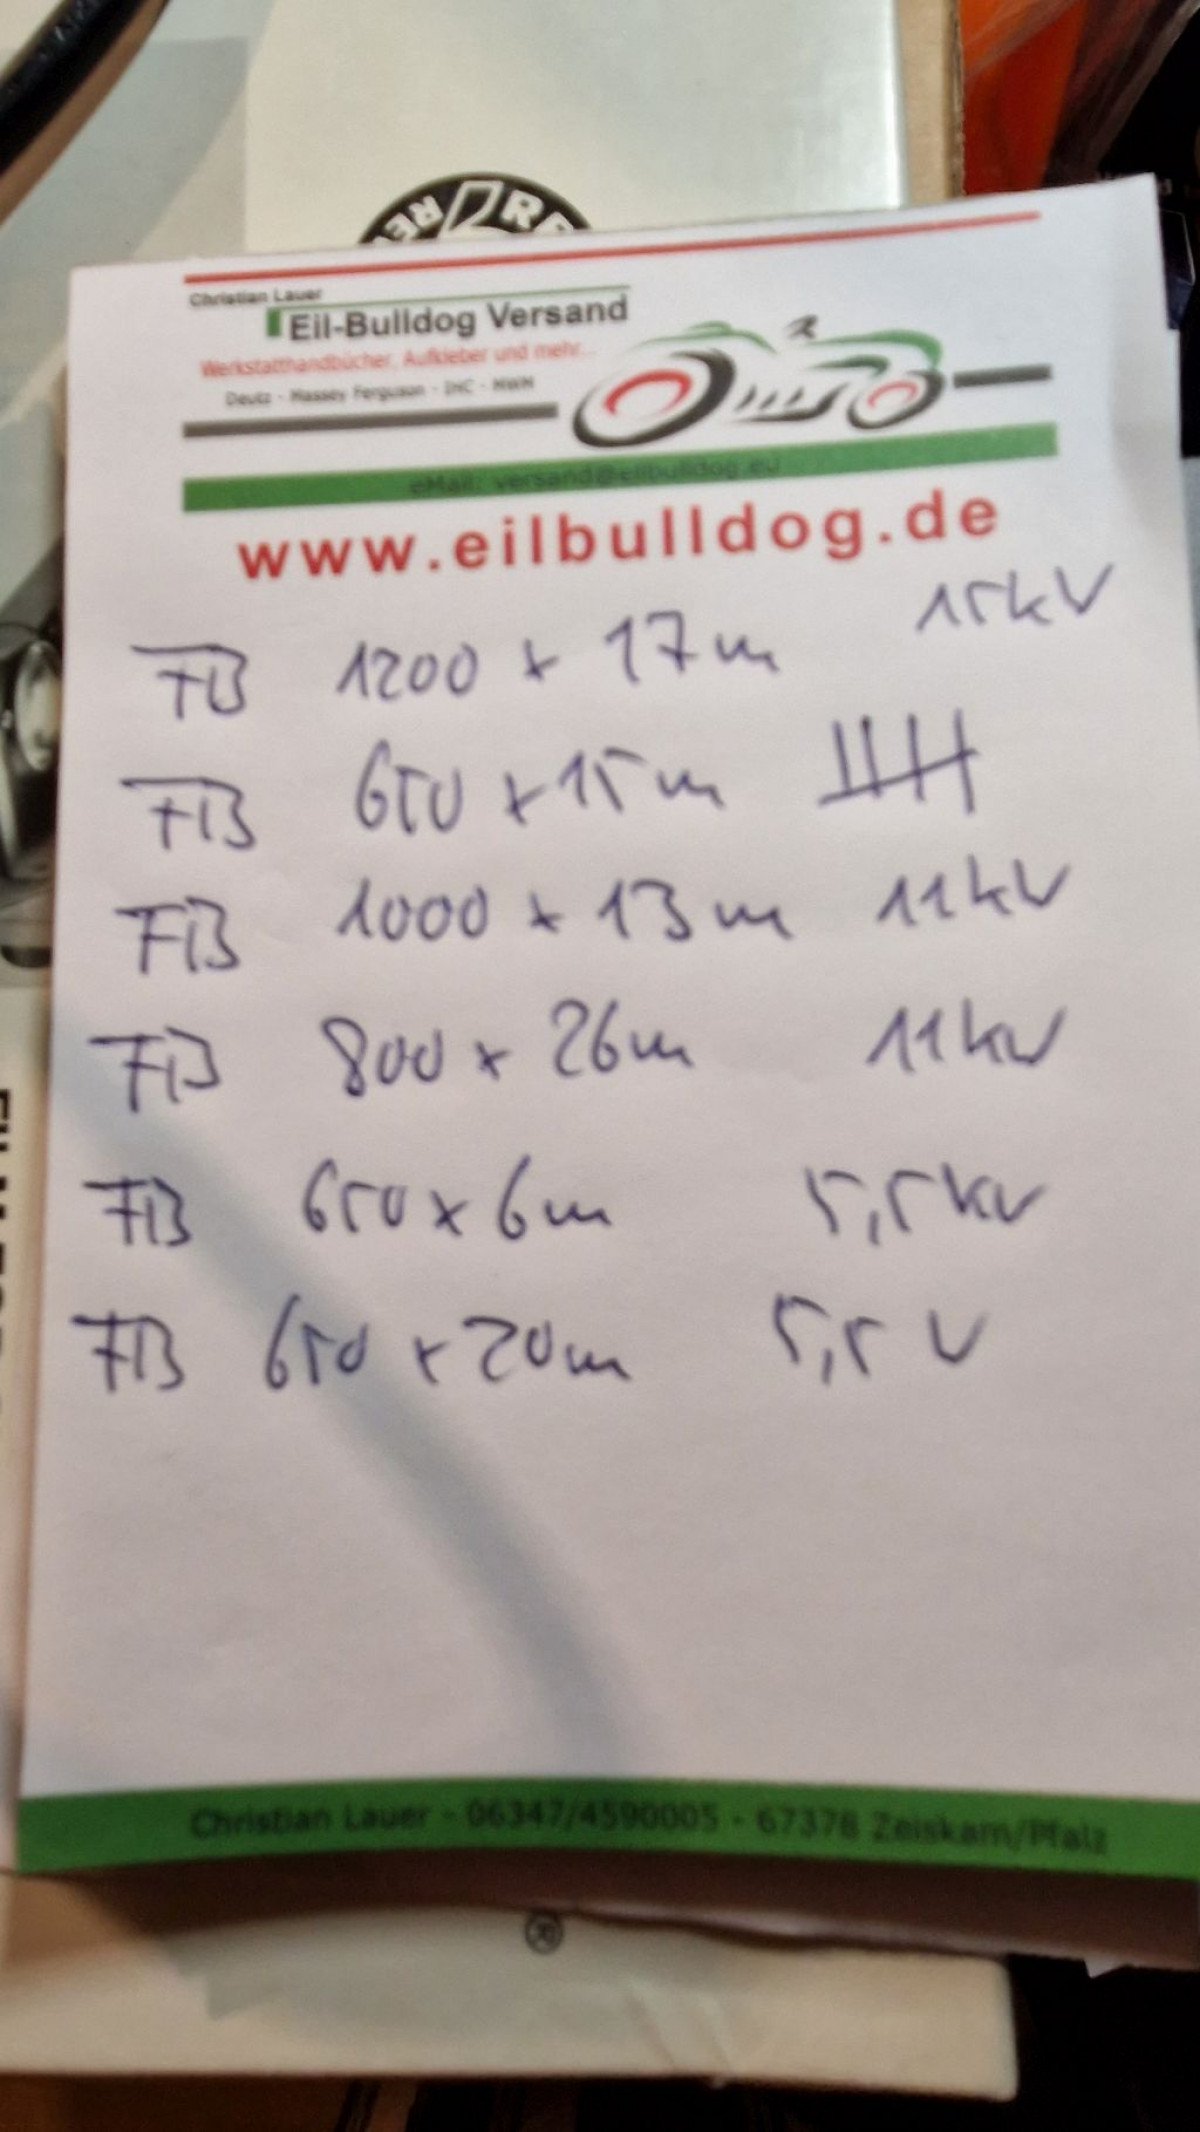 Christian Lauer
Eil-Bulldog Versand
Werkstatthandbücher, Aufkleber und mehr...
Deutz - Massey Ferguson - IHC - MWM
eMail: versand@eilbulldog.eu
www.eilbulldog.de
FB 1200 x 17m 15kV
FB 650 x 15m
FB 1000 x 13m 11kV
FB 800 x 26m 11kW
FB 650 x 6m 5,5kW
FB 650 x 20m 5,5 V
Christian Lauer - 06347/4590005 - 67378 Zeiskam/Pfalz
®